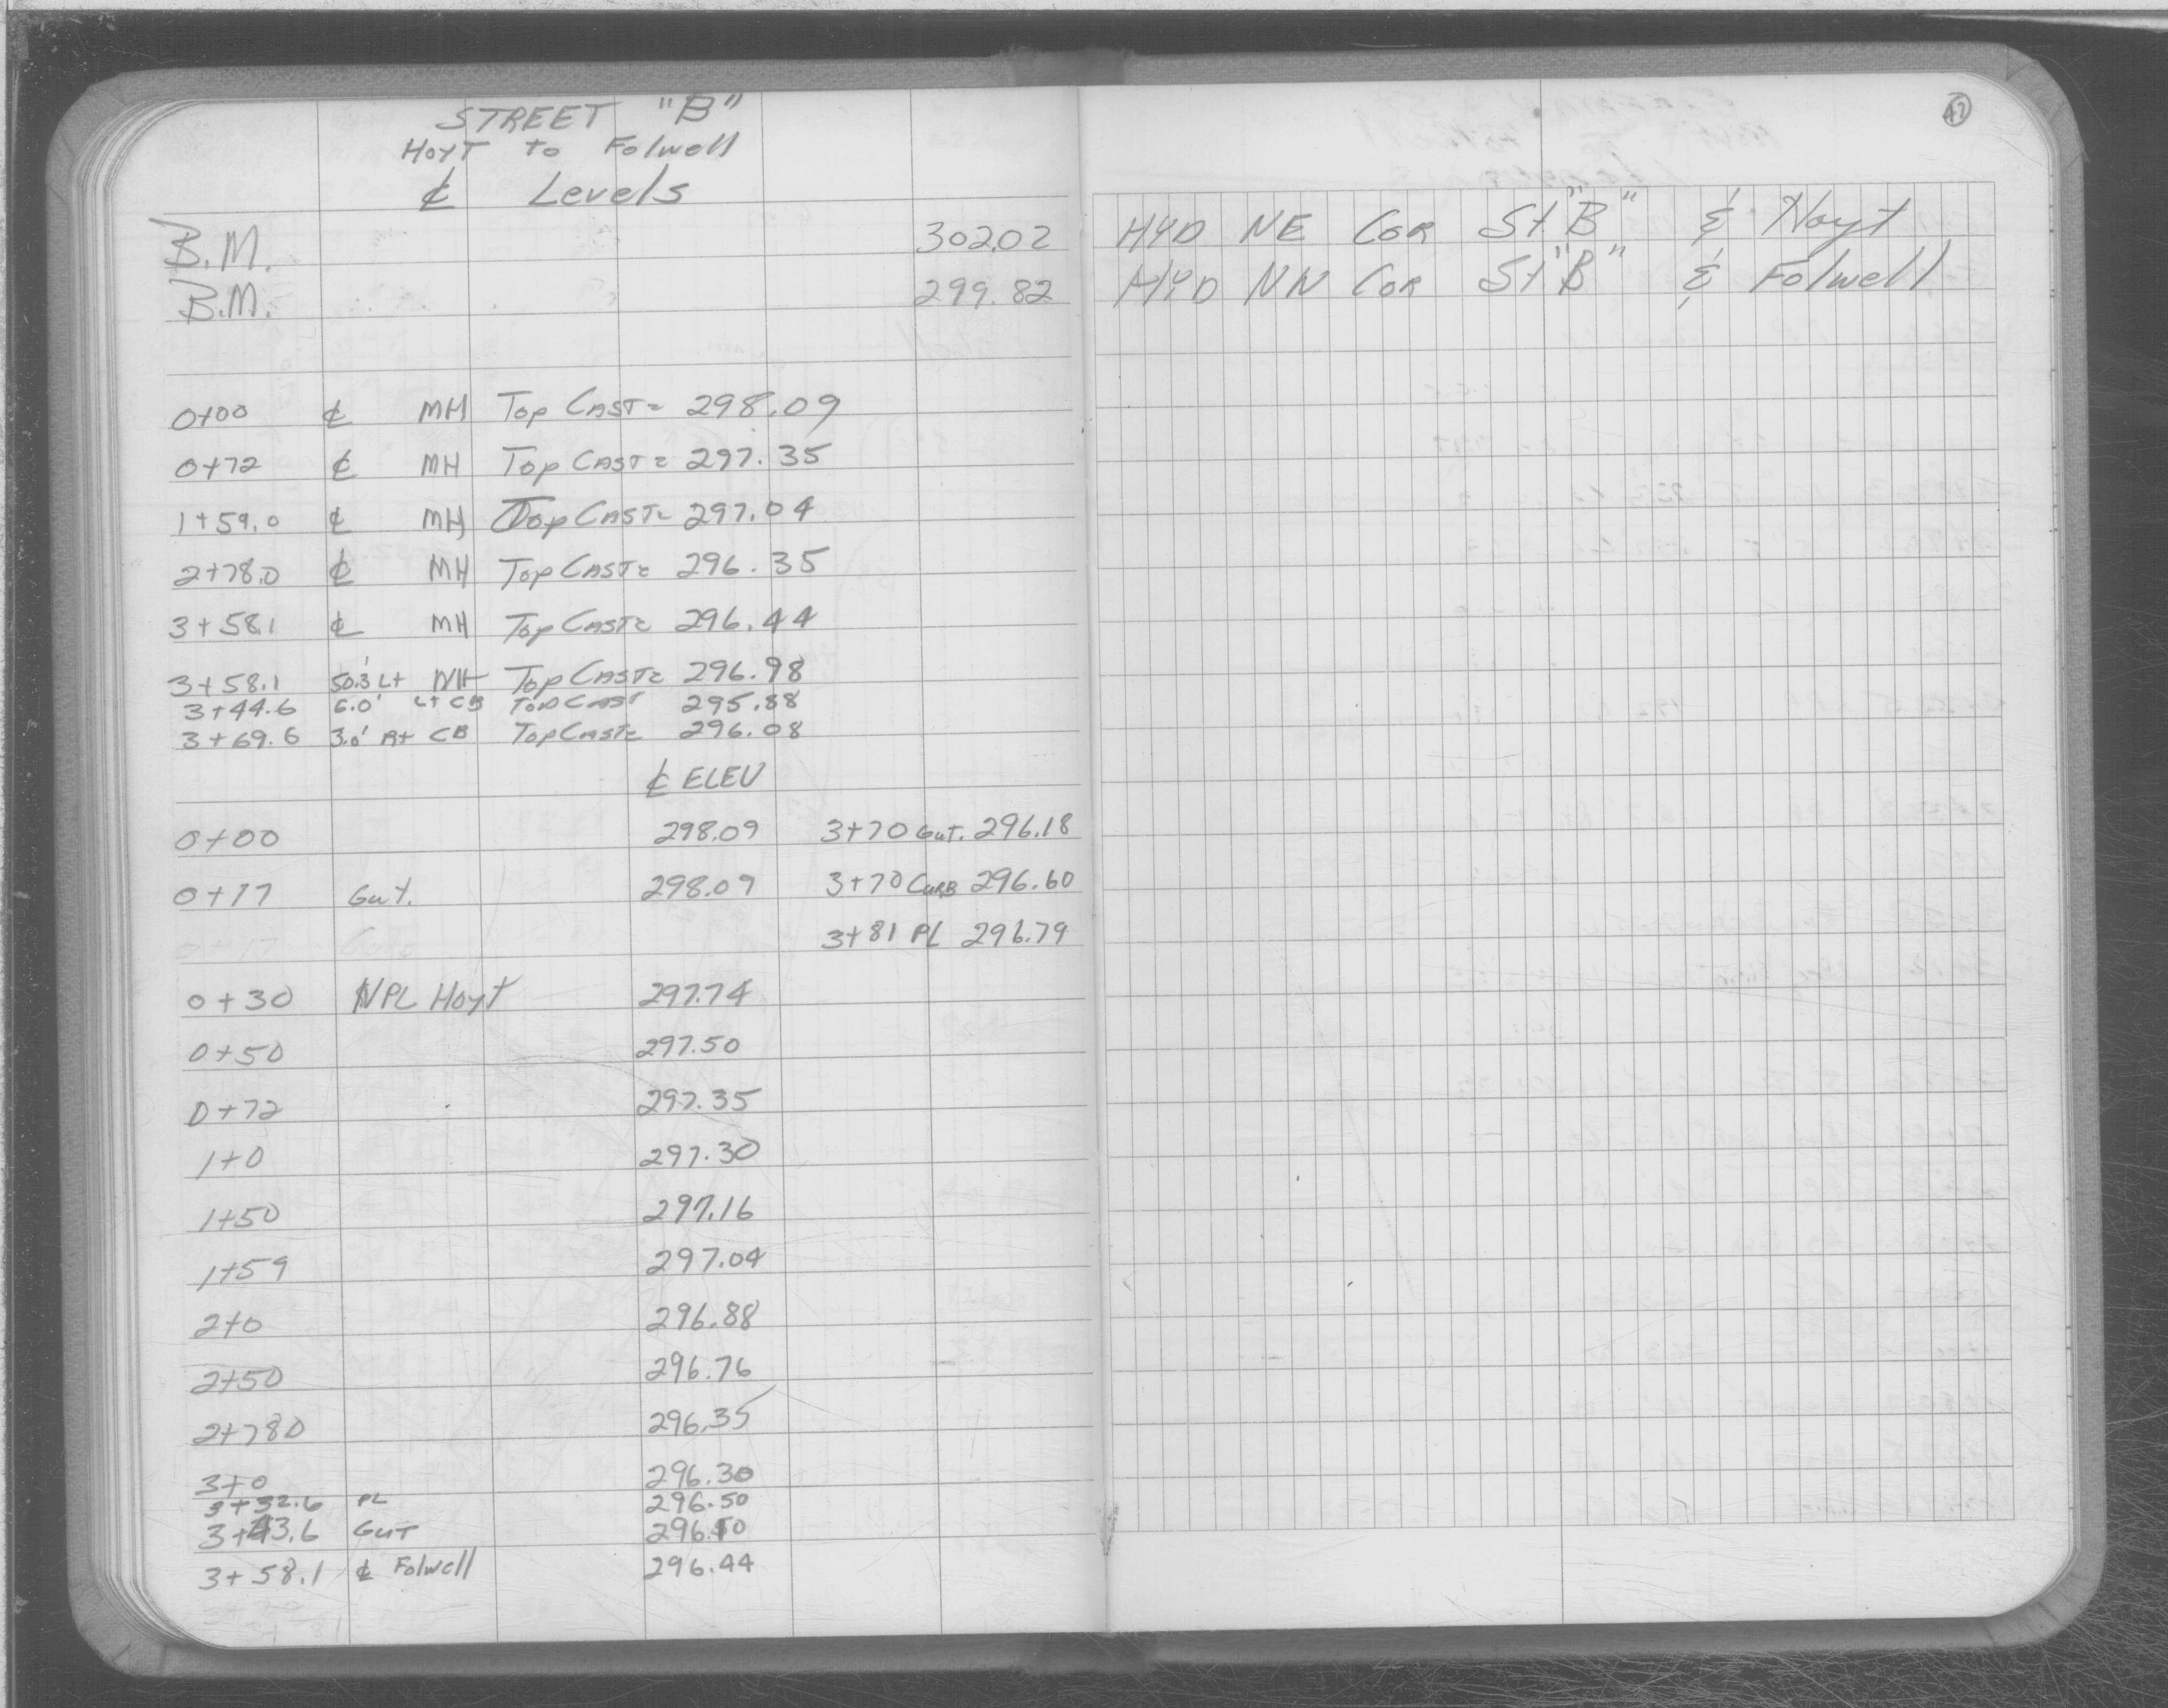 STREET "B"
Hoyt to Folwell
℄ Levels
B.M. 302.02 HYD NE COR St "B" & Hoyt
B.M. 299.82 HYD NW COR St "B" & Folwell
0+00 ℄ MH Top CAST= 298.09
0+72 ℄ MH Top CAST= 297.35
1+59.0 ℄ MH Top CAST= 297.04
2+78.0 ℄ MH Top CAST= 296.35
3+58.1 ℄ MH Top CAST= 296.44
3+58.1 50.3' Lt MH Top CAST= 296.98
3+44.6 6.0' Lt CB Top CAST 295.88
3+69.6 3.0' Rt CB Top CAST= 296.08
℄ ELEV
0+00 298.09 3+70 Gut. 296.18
0+17 Gut. 298.09 3+70 CURB 296.60
3+81 PL 296.79
0+30 NPL Hoyt 297.74
0+50 297.50
0+72 297.35
1+0 297.30
1+50 297.16
1+59 297.04
2+0 296.88
2+50 296.76
2+780 296.35
3+0 296.30
3+32.6 PL 296.50
3+43.6 GUT 296.10
3+58.1 ℄ Folwell 296.44